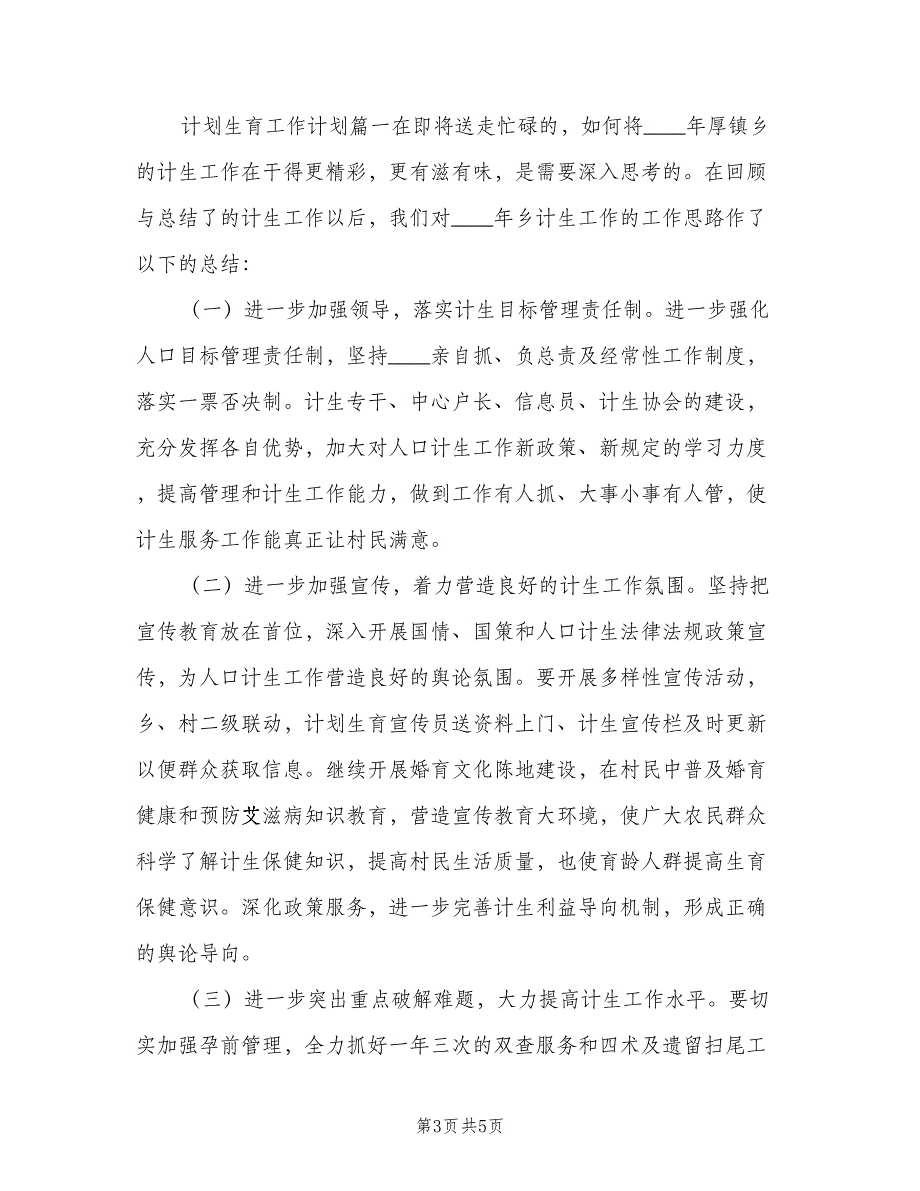 计划生育工作计划篇一在即将送走忙碌的，如何将____年厚镇乡
的计生工作在干得更精彩，更有滋有味，是需要深入思考的。在回顾
与总结了的计生工作以后，我们对____年乡计生工作的工作思路作了
以下的总结：
（一）进一步加强领导，落实计生目标管理责任制。进一步强化
人口目标管理责任制，坚持____亲自抓、负总责及经常性工作制度，
落实一票否决制。计生专干、中心户长、信息员、计生协会的建设，
充分发挥各自优势，加大对人口计生工作新政策、新规定的学习力度
，提高管理和计生工作能力，做到工作有人抓、大事小事有人管，使
计生服务工作能真正让村民满意。
（二）进一步加强宣传，着力营造良好的计生工作氛围。坚持把
宣传教育放在首位，深入开展国情、国策和人口计生法律法规政策宣
传，为人口计生工作营造良好的舆论氛围。要开展多样性宣传活动，
乡、村二级联动，计划生育宣传员送资料上门、计生宣传栏及时更新
以便群众获取信息。继续开展婚育文化陈地建设，在村民中普及婚育
健康和预防艾滋病知识教育，营造宣传教育大环境，使广大农民群众
科学了解计生保健知识，提高村民生活质量，也使育龄人群提高生育
保健意识。深化政策服务，进一步完善计生利益导向机制，形成正确
的舆论导向。
（三）进一步突出重点破解难题，大力提高计生工作水平。要切
实加强孕前管理，全力抓好一年三次的双查服务和四术及遗留扫尾工
第3页共5页